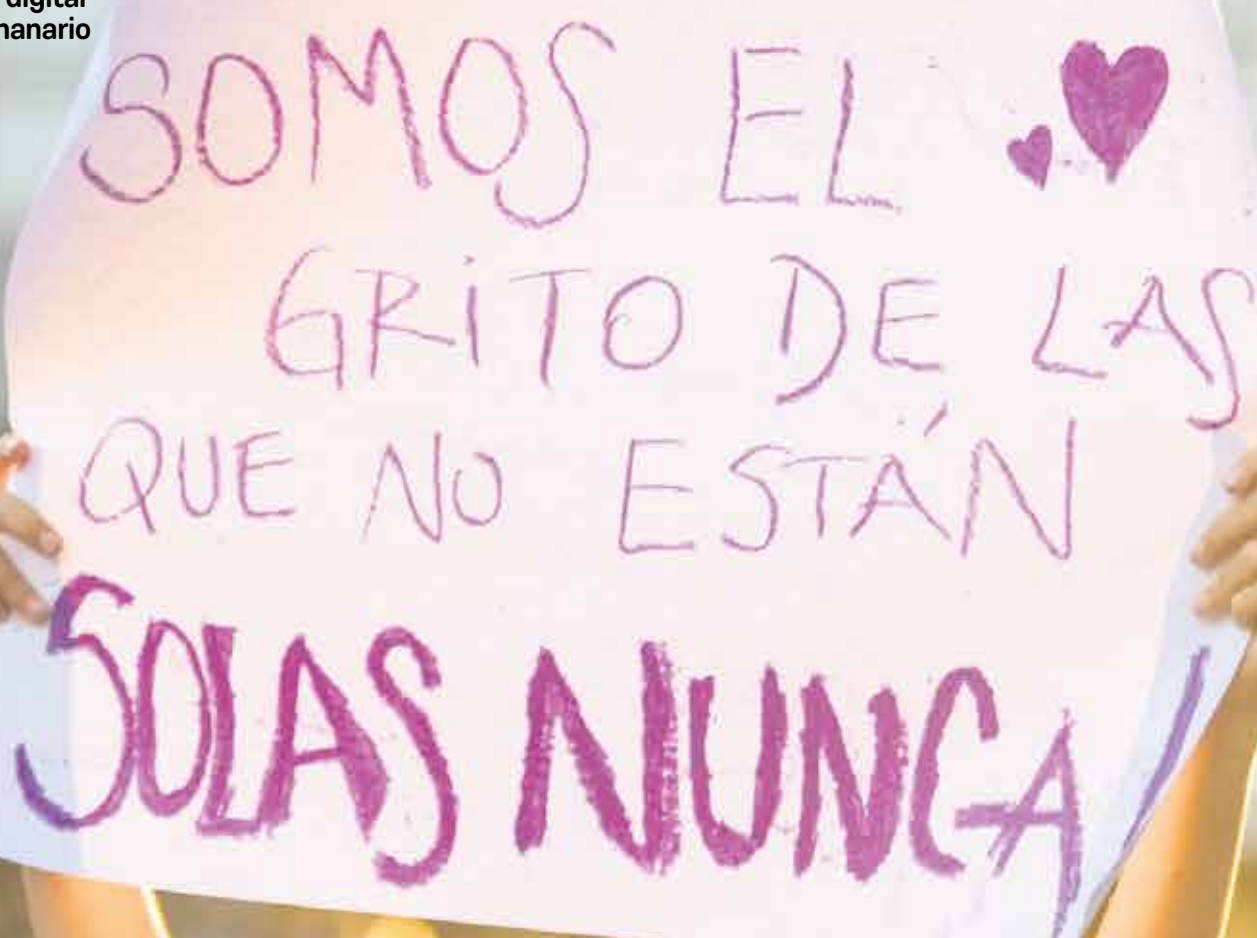 digital
SOMOS EL
GRiTO DE LAS
QUE NO ESTÁN
SOLAS NUNCA